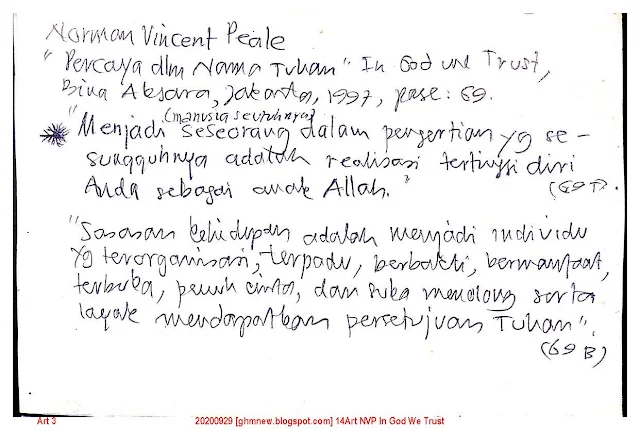 Norman Vincent Peale
"Percaya dlm Nama Tuhan" In God we Trust,
Bina Aksara, Jakarta, 1997, page: 69.
(manusia seutuhnya)
"Menjadi seseorang dalam pengertian yg se-
sungguhnya adalah realisasi tertinggi diri
Anda sebagai anak Allah."
(69T).
"Sasaran kehidupan adalah menjadi individu
yg terorganisasi, terpadu, berbakti, bermanfaat,
terbuka, penuh cinta, dan suka menolong serta
layak mendapatkan persetujuan Tuhan".
(69 B)
Art 3 20200929 [ghmnew.blogspot.com] 14Art NVP In God We Trust